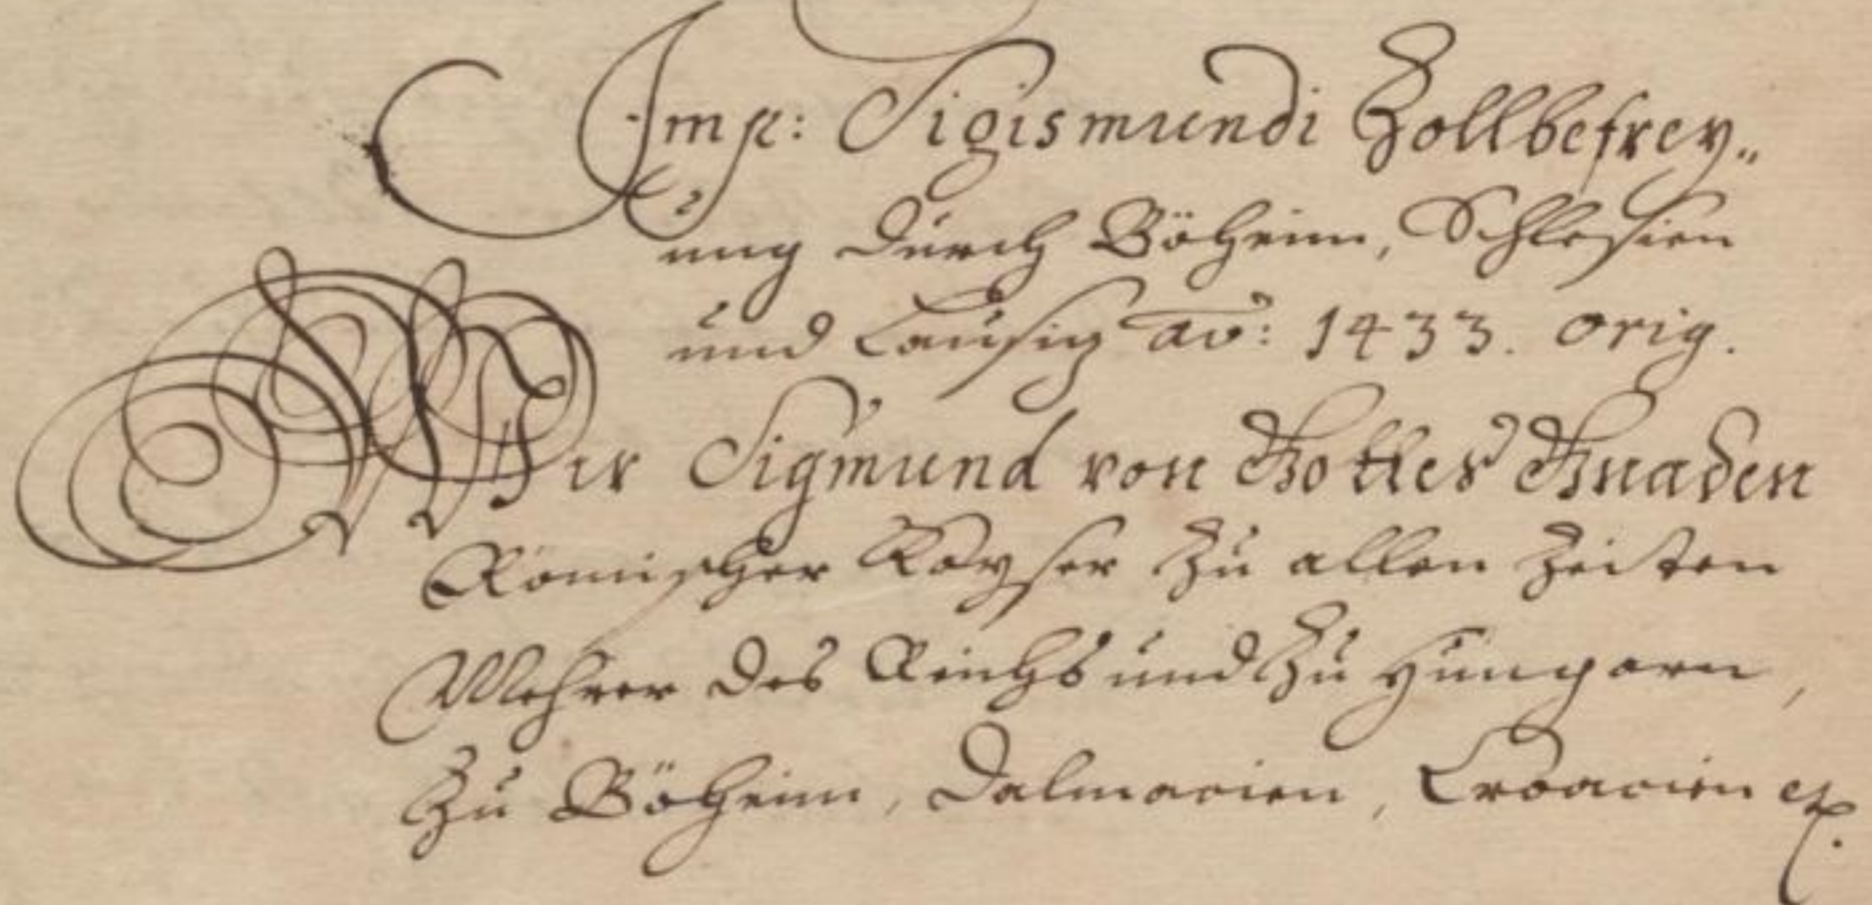 Imp: Sigismundi Zollbefrey„
ung durch Böheim, Schlesien
und Lausiz aõ: 1433. orig.
Wir Sigmund von Gottes Gnaden
Römischer Kayser Zu allen Zeiten
Mehrer des Reichs und Zu Hungarn,
Zu Böheim, Dalmacien, Croacien etc.